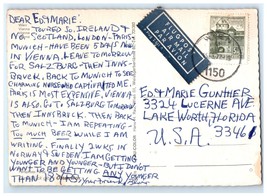 DEAR ED & MARIE:
TOURED SO. IRELAND &
NO.- SCOTLAND, LONDON- PARIS-
MUNICH- HAVE BEEN 5 DAYS NOW
IN VIENNA. LEAVE TOMORROW
FOR SALZBURG- THEN INNS-
BRUCK, BACK TO MUNICH TO SEE
CHARMING NURSE WHO CAPTIVATED ME.
PARIS IS MOST EXPENSIVE, VIENNA
IS ALSO. GO TO SALZBURG TOMORROW
THEN INNSBRUCK. THEN BACK
TO MUNICH- I AM REPEATING-
TOO MUCH BEER WHILE I AM
WRITING. FINALLY 2 WKS IN
NORWAY & SWEDEN I AM GETTING
YOUNGER AND YOUNGER- BUT I DON'T
WANT TO BE GETTING ANY YOUNGER
THAN 18 YRS.
FLUGPOST
PAR AVION
AIR MAIL
1150
ED & MARIE GUNTHER
3324 LUCERNE AVE
LAKE WORTH, FLORIDA
U.S.A. 33461